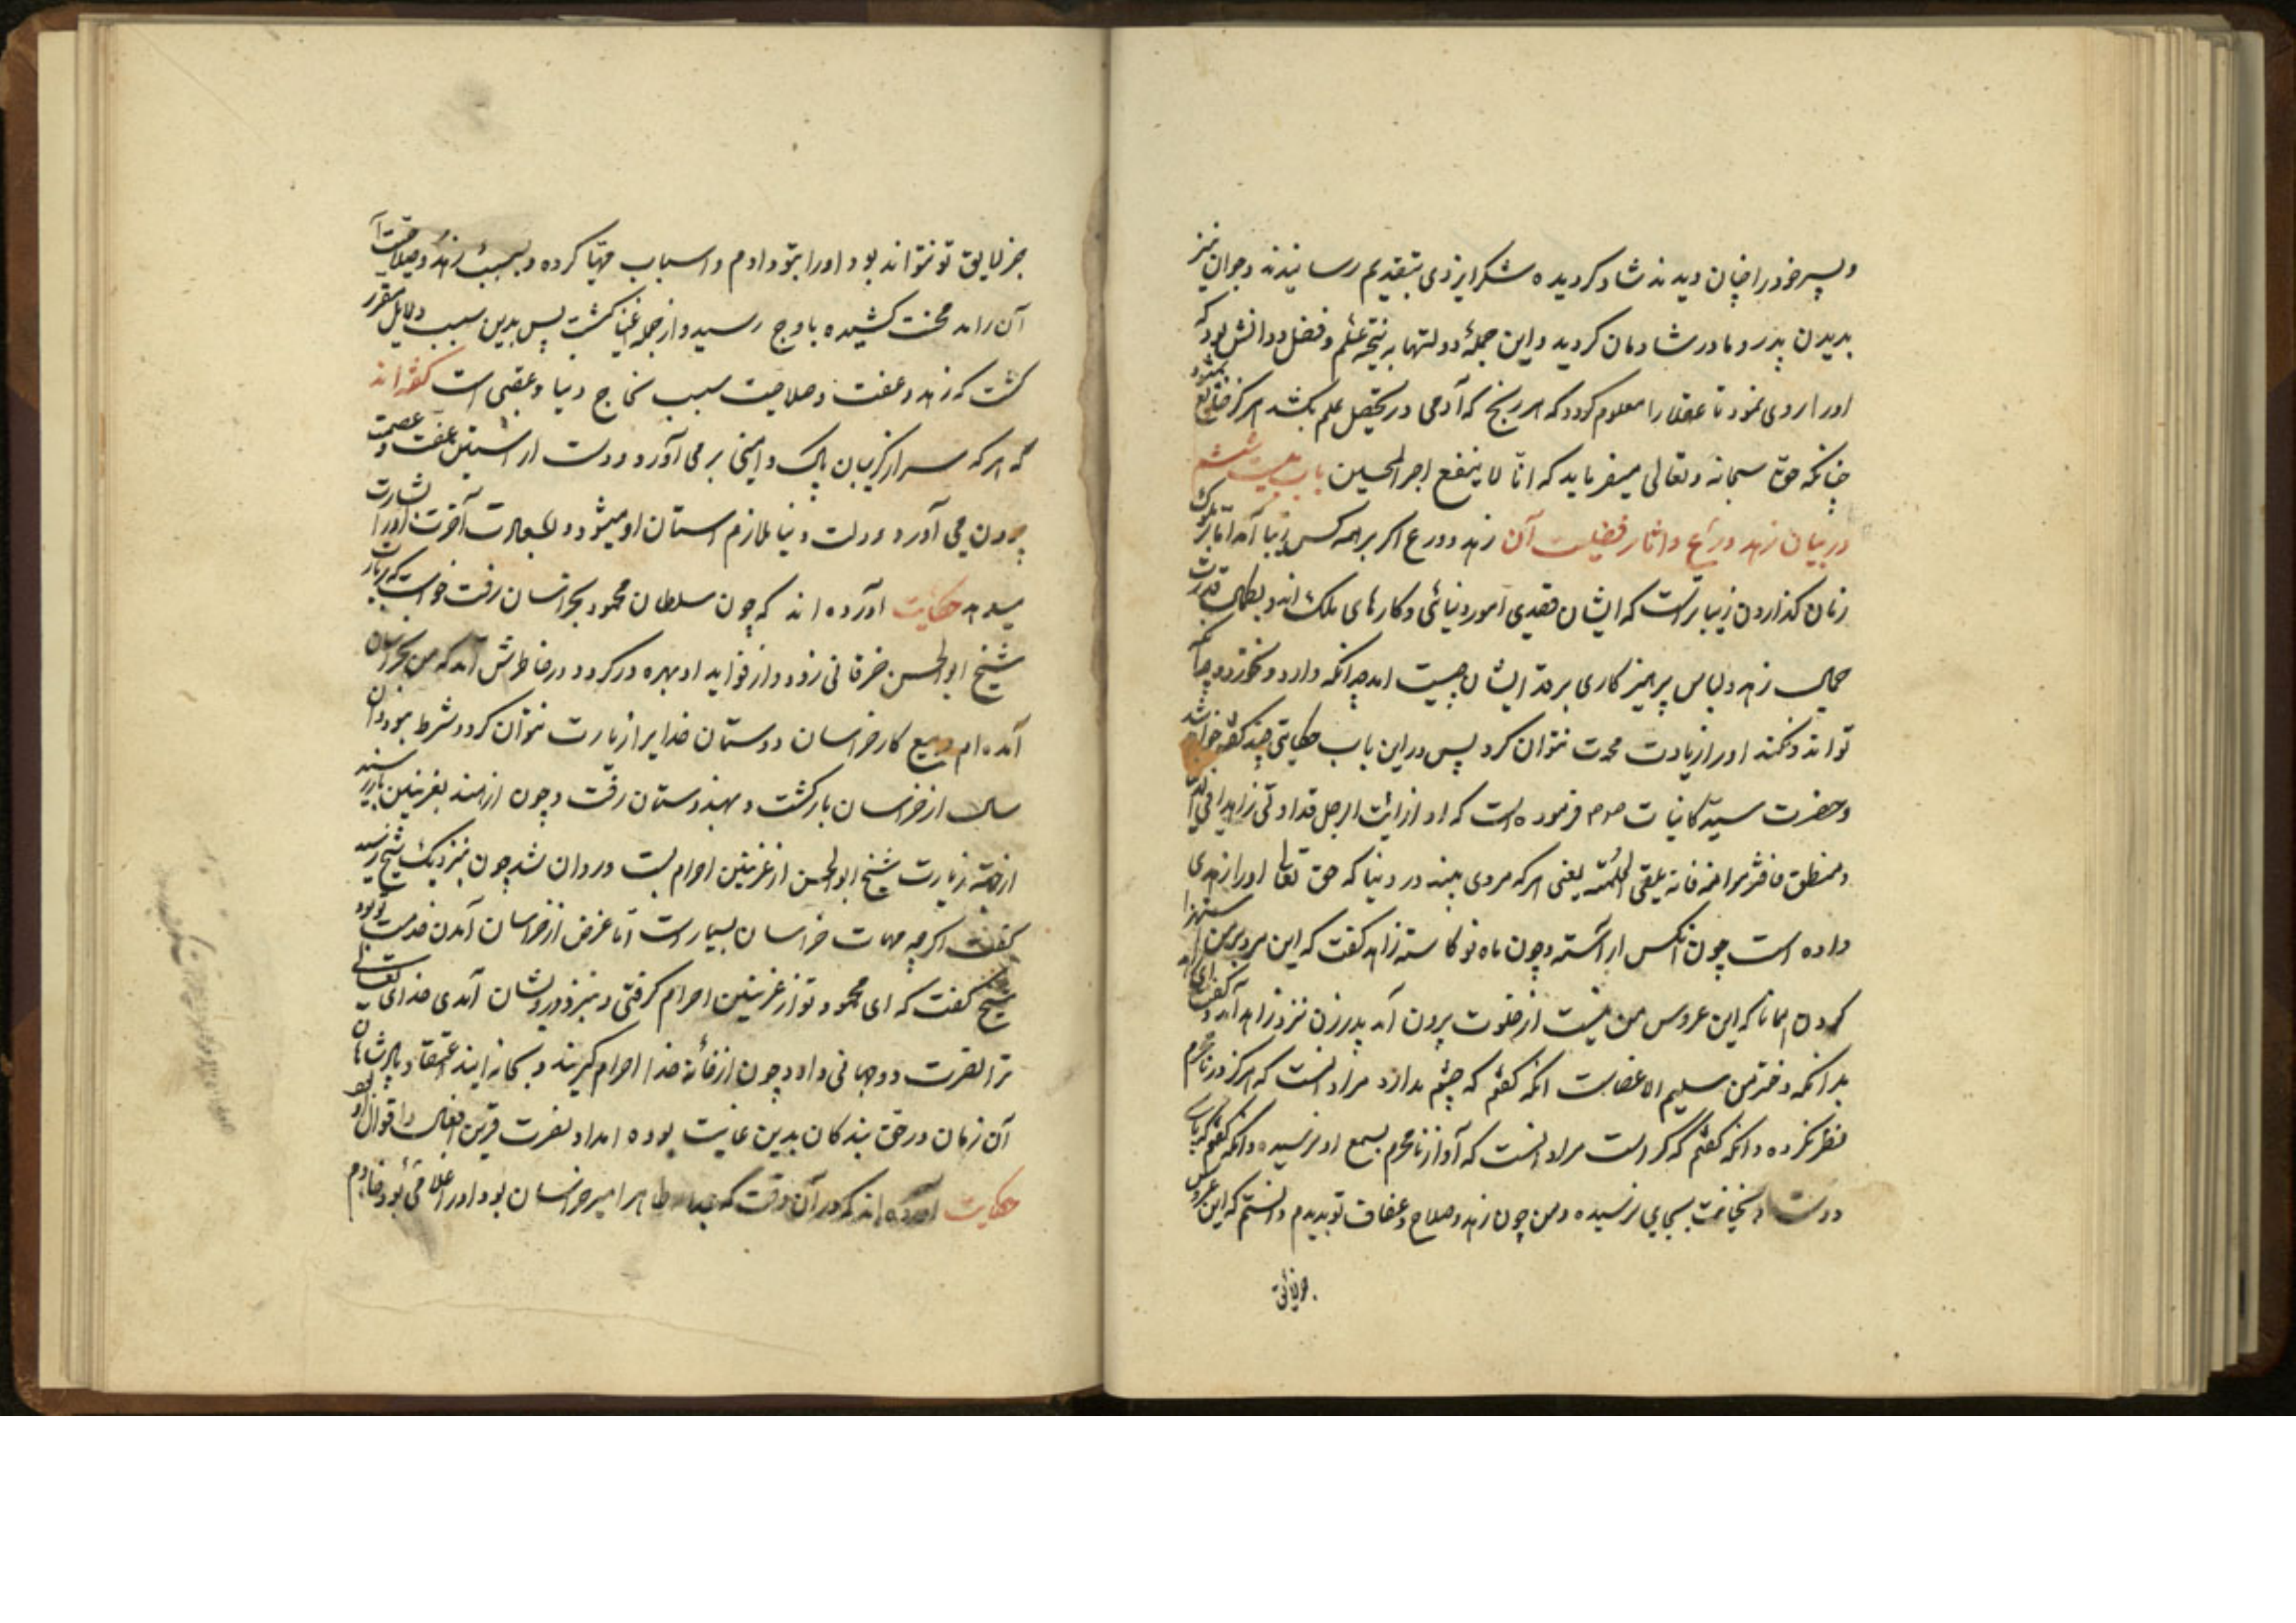 و پسر خود را چنان دیدند شاد کردیده شکر ایزدی بتقدیم رسانیدند و جوان نیز
بدیدن پدر و مادر شادمان کردید و این جملهٔ دولتها به نتیجه علم و فضل و دانش بود که
او را روی نمود تا عقلا را معلوم کردد که هر رنج که آدمی در تحصیل علم بکشد هرکز ضایع نشود
چنانکه حق سبحانه و تعالی میفرماید که انا لا یضیع اجر المحسین باب بیست ششم
در بیان زهد و ورع و اثار فضیلت آن زهد و ورع اکر بر همه کس زیبا آمد اما بر ملوک
زمان کذاردن زیباتر است که ایشان مقیدی امور دنیائی و کارهای ملک اند و بکمال قدرت
جمال زهد و لباس پرهیزکاری بر قد ایشان چیست هر چه انکه دارد و نخورد و هر چه آنکه
تواند و نکند او را زیادت مدت نتوان کرد پس در این باب حکایتی چند کفته خواهد شد
و حضرت سید کاینات صلعم فرموده است که اذ ارایت الرجل قد اوتی زاهدا فی الدنیا
و منطق فانه یلقی الحکمته یعنی هر که مردی بیند در دنیا که حق تعالی او را زهدی
داده است چون انکس اراسته و چون ماه نو کاسته زاهد کفت که این مرد بر من استهزا
کردن همانا که این عروس من نیست از خلوت برون آمد پدر زن نزد زاهد آمد و کفت ای زاهد
بدانکه دختر من سلیم الاعضاست انکه کفتم که چشم ندارد مراد انست که هرکز در نامحرم
نظر نکرده و انکه کفتم که کر است مراد انست که آواز نامحرم بسمع او نرسیده و انکه کفتم که بی پای
دوست و بخیانت بجایی نرسیده و من چون زهد و صلاح و عفاف تو بدیدم دانستم که این عروس
جز لایق
جز لایق تو نتواند بود او را بتو دادم و اسباب مهیا کرده و بسبب زهد و صلاحیت
آن زاهد محنت کشیده باوج رسید و از جمله اغنیا کشت پس بدین سبب دلایل مقرر
کشت که زهد و عفت و صلاحیت سبب نجاح دنیا و عقبی است کفته اند
که هر که سر از کریبان پاک دامنی بر می آورد و دست از استین عفت و عصمت
برون می آورد دولت دنیا ملازم استان او میشود و بسعادت آخرت او را بشارت
میدهد حکایت اورده اند که چون سلطان محمود بخراسان رفت خواست که زیارت
شیخ ابوالحسن خرقانی رود و از فواید او بهره ور کردد در خاطرش آمد که من بخراسان
آمده ام و بتبع کار خراسان دوستان خدایرا زیارت نتوان کرد و شرط نبود دران
سال از خراسان بازکشت و بهندوستان رفت و چون از هند بغزنین باز رسید
از جهته زیارت شیخ ابوالحسن از غزنین احرام بست و روان شد چون بنزدیک شیخ رسید
کفت اکرچه مهمات خراسان بسیار است اما غرض از خراسان آمدن خدمت تو بود
شیخ کفت که ای محمود تو از غزنین احرام کرفتی و بنزد درویشان آمدی خدای تعالی
ترا نصرت دو جهانی داد و چون از خانه خدا احرام کیرند و بخانه ایند اعتقاد پادشاهان
آن زمان در حق بندکان بدین غایت بوده امداد نصرت قرین افعال و اقوال بود
حکایت آورده اند که در آن وقت که عبدالله طاهر امیر خراسان بود او را غلامی بود خادم